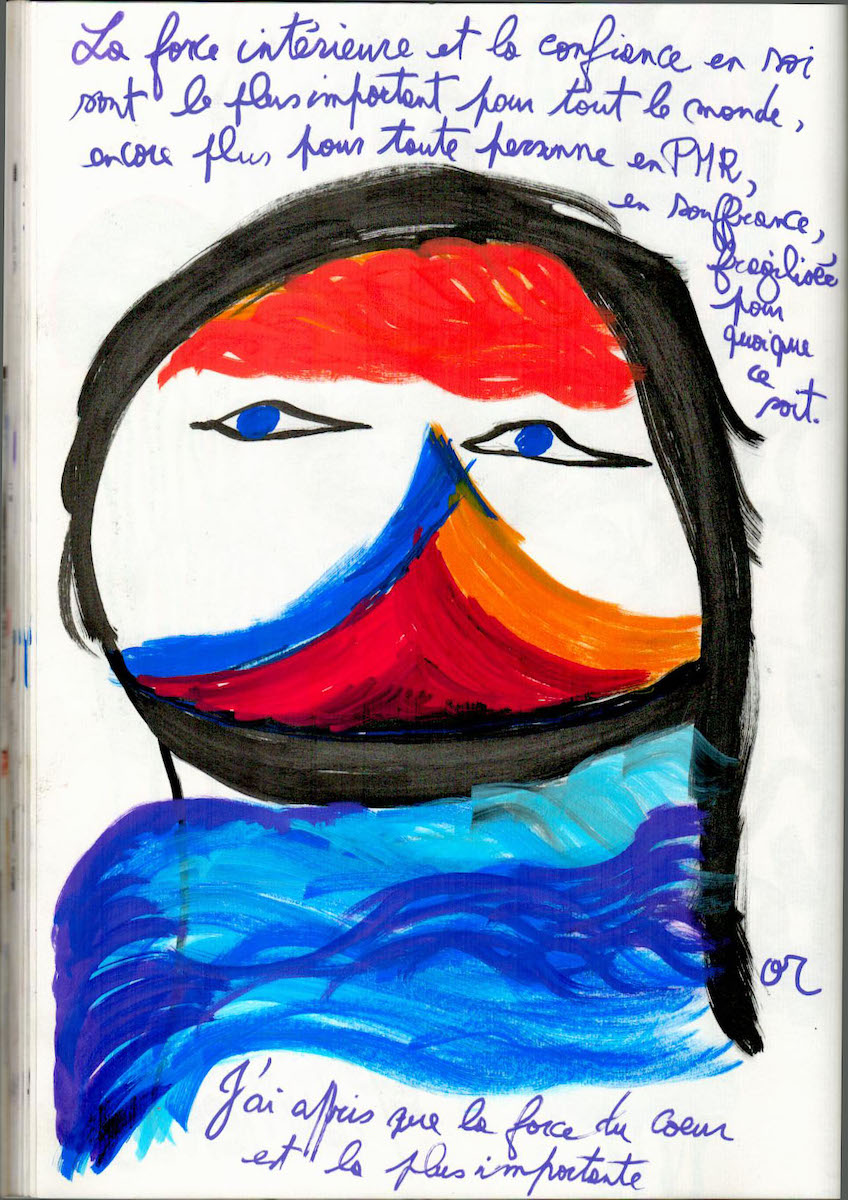 La force intérieure et la confiance en soi
sont le plus important pour tout le monde,
encore plus pour toute personne en PMR,
en souffrance,
fragilisée
pour
quoique
ce
soit.
or
J'ai appris que la force du coeur
est la plus importante